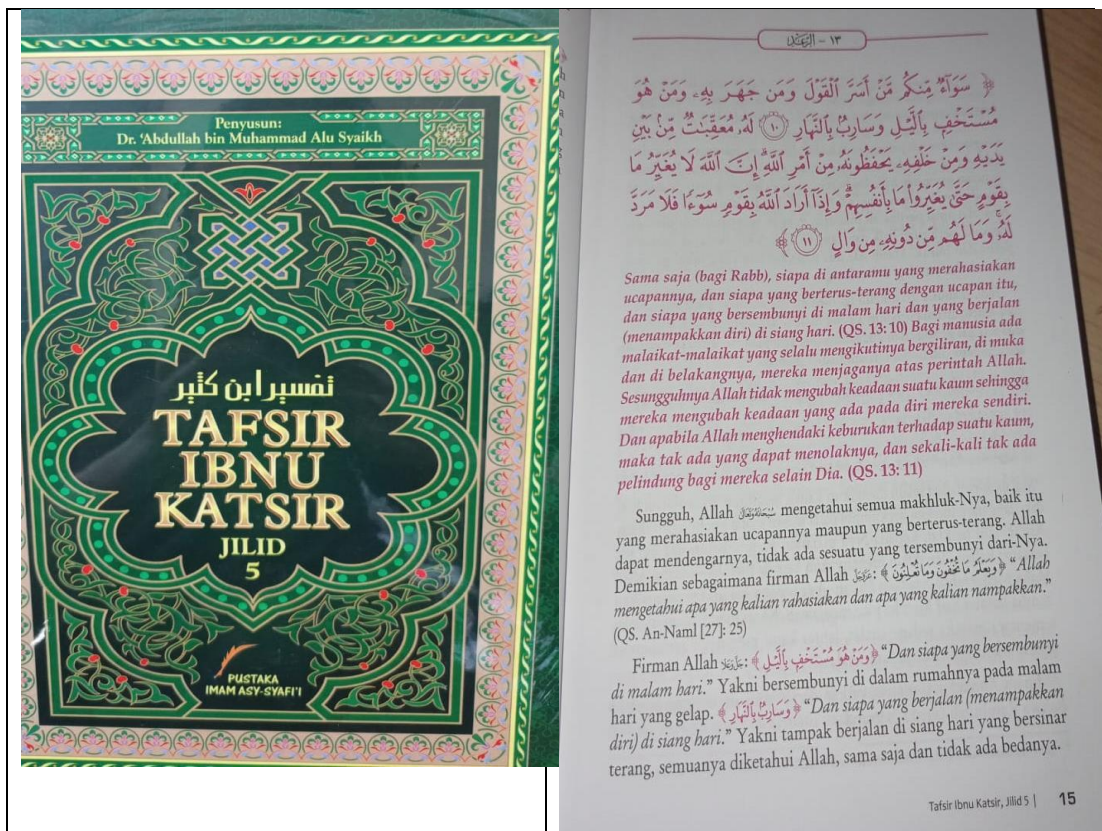 Penyusun:
Dr. 'Abdullah bin Muhammad Alu Syaikh
تفسير ابن كثير
TAFSIR
IBNU
KATSIR
JILID
5
PUSTAKA
IMAM ASY-SYAFI'I
١٣ - الرعد
﴿ سَوَآءٌ مِّنكُم مَّنْ أَسَرَّ ٱلْقَوْلَ وَمَن جَهَرَ بِهِۦ وَمَنْ هُوَ
مُسْتَخْفٍۭ بِٱلَّيْلِ وَسَارِبٌۢ بِٱلنَّهَارِ ۝١٠ لَهُۥ مُعَقِّبَٰتٌ مِّنۢ بَيْنِ
يَدَيْهِ وَمِنْ خَلْفِهِۦ يَحْفَظُونَهُۥ مِنْ أَمْرِ ٱللَّهِ ۗ إِنَّ ٱللَّهَ لَا يُغَيِّرُ مَا
بِقَوْمٍ حَتَّىٰ يُغَيِّرُوا۟ مَا بِأَنفُسِهِمْ ۗ وَإِذَآ أَرَادَ ٱللَّهُ بِقَوْمٍ سُوٓءًا فَلَا مَرَدَّ
لَهُۥ ۚ وَمَا لَهُم مِّن دُونِهِۦ مِن وَالٍ ۝١١ ﴾
Sama saja (bagi Rabb), siapa di antaramu yang merahasiakan
ucapannya, dan siapa yang berterus-terang dengan ucapan itu,
dan siapa yang bersembunyi di malam hari dan yang berjalan
(menampakkan diri) di siang hari. (QS. 13: 10) Bagi manusia ada
malaikat-malaikat yang selalu mengikutinya bergiliran, di muka
dan di belakangnya, mereka menjaganya atas perintah Allah.
Sesungguhnya Allah tidak mengubah keadaan suatu kaum sehingga
mereka mengubah keadaan yang ada pada diri mereka sendiri.
Dan apabila Allah menghendaki keburukan terhadap suatu kaum,
maka tak ada yang dapat menolaknya, dan sekali-kali tak ada
pelindung bagi mereka selain Dia. (QS. 13: 11)
Sungguh, Allah mengetahui semua makhluk-Nya, baik itu
yang merahasiakan ucapannya maupun yang berterus-terang. Allah
dapat mendengarnya, tidak ada sesuatu yang tersembunyi dari-Nya.
Demikian sebagaimana firman Allah : ﴿ وَيَعْلَمُ مَا تُخْفُونَ وَمَا تُعْلِنُونَ ﴾ "Allah
mengetahui apa yang kalian rahasiakan dan apa yang kalian nampakkan."
(QS. An-Naml [27]: 25)
Firman Allah : ﴿ وَمَنْ هُوَ مُسْتَخْفٍۭ بِٱلَّيْلِ ﴾ "Dan siapa yang bersembunyi
di malam hari." Yakni bersembunyi di dalam rumahnya pada malam
hari yang gelap. ﴿ وَسَارِبٌۢ بِٱلنَّهَارِ ﴾ "Dan siapa yang berjalan (menampakkan
diri) di siang hari." Yakni tampak berjalan di siang hari yang bersinar
terang, semuanya diketahui Allah, sama saja dan tidak ada bedanya.
Tafsir Ibnu Katsir, Jilid 5 | 15